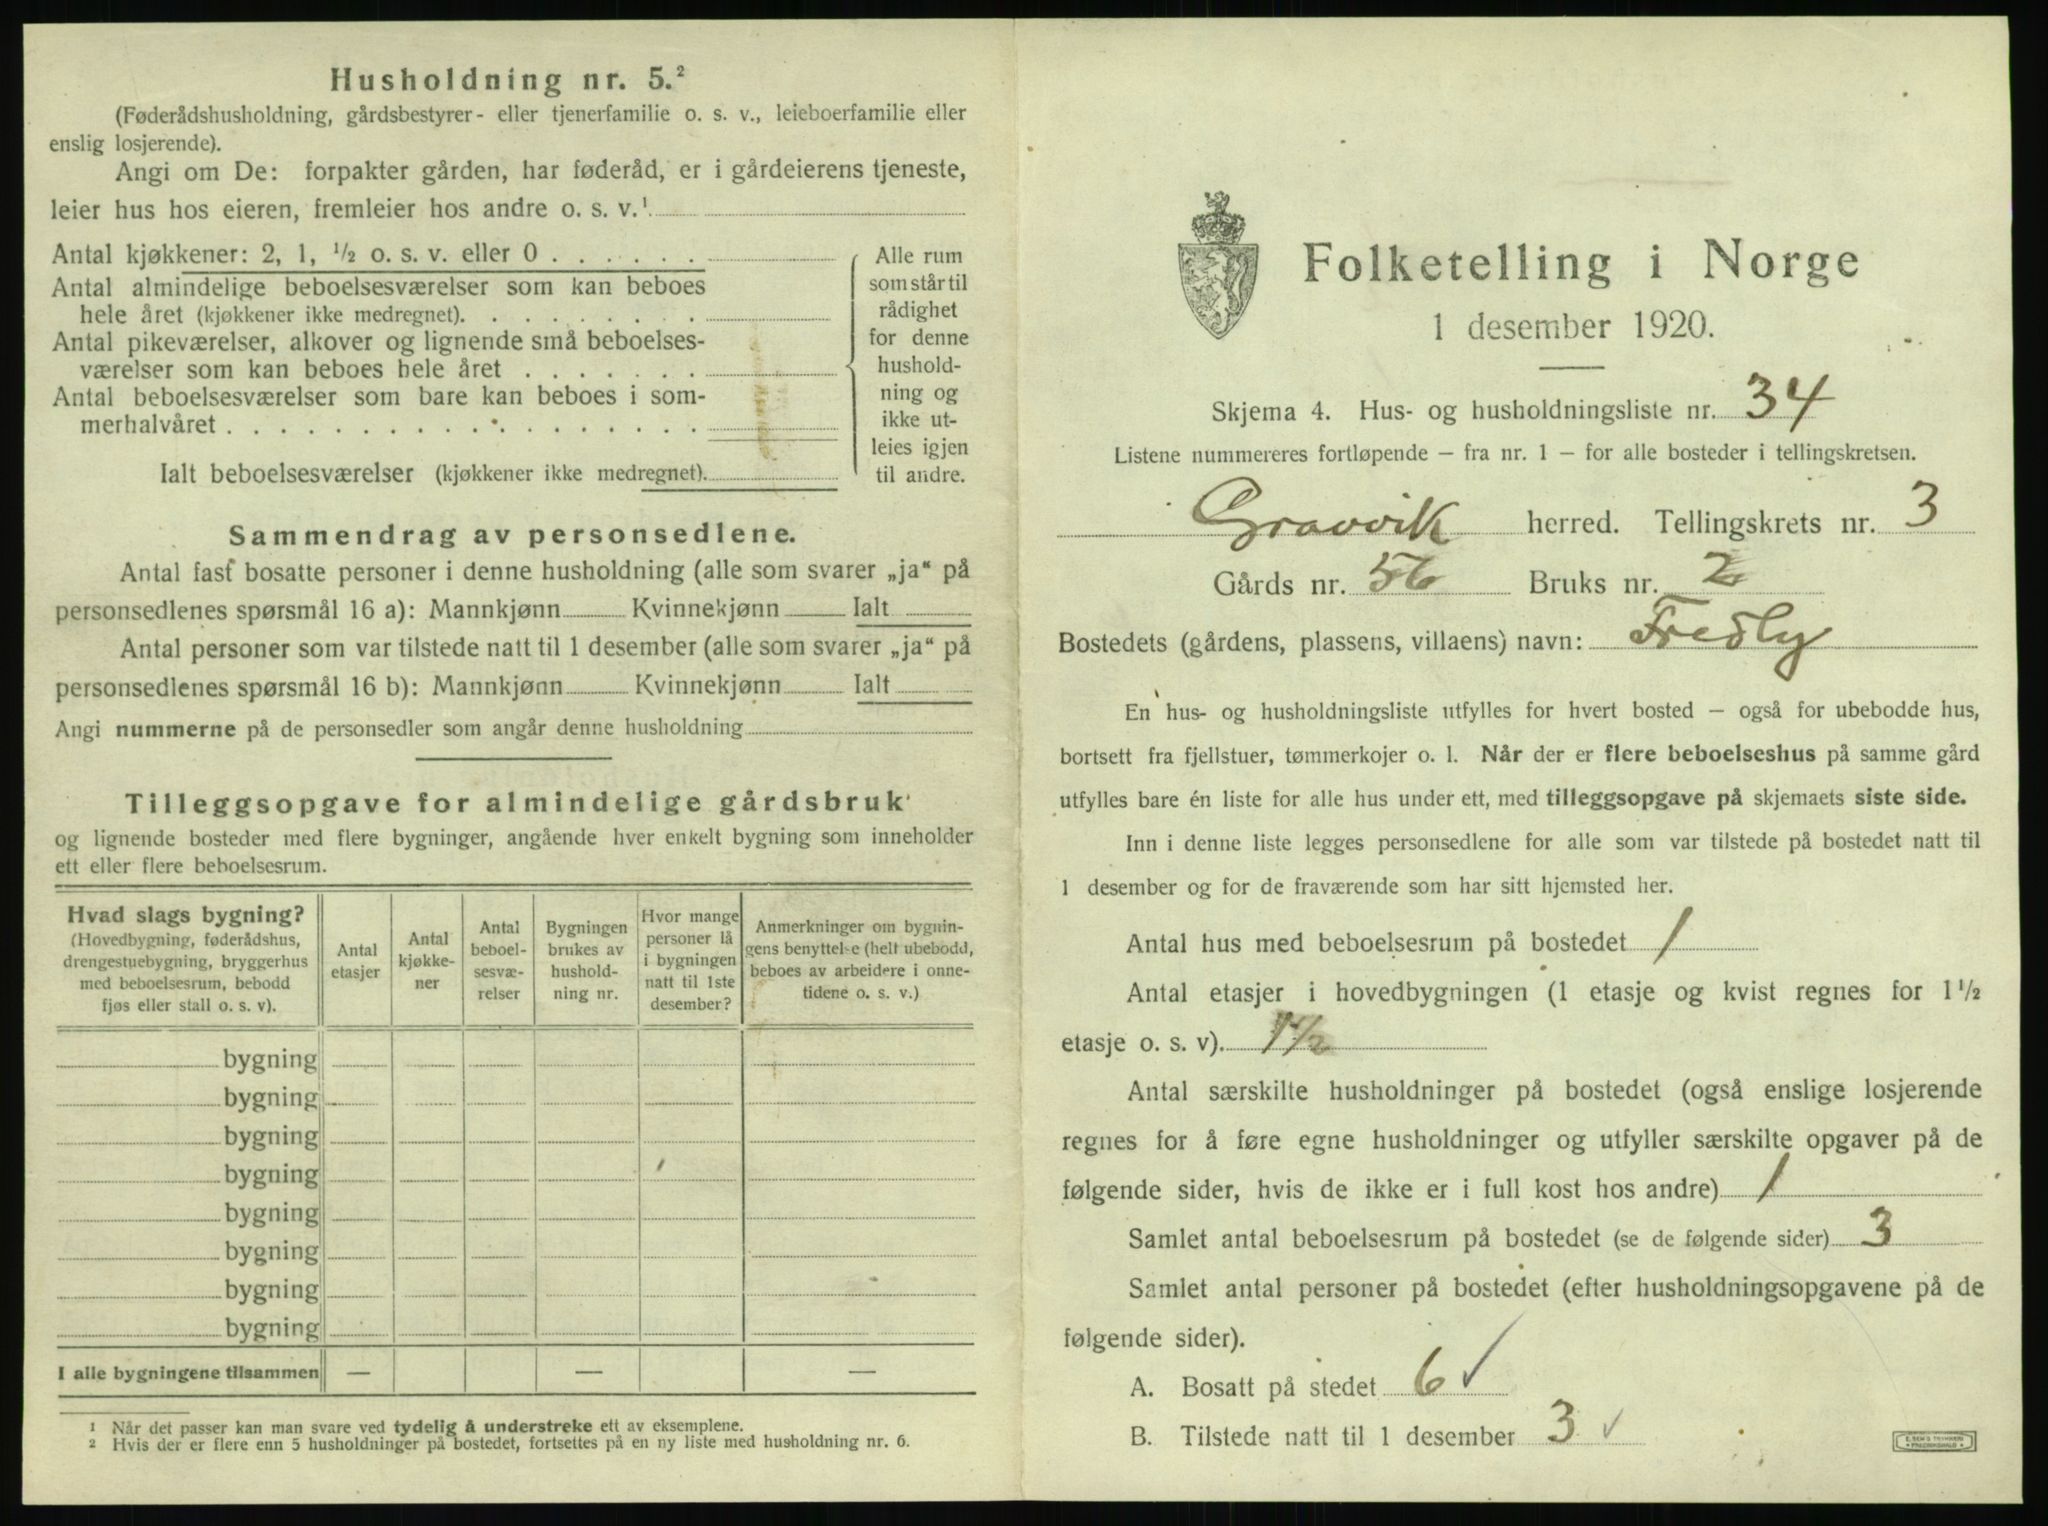 Husholdning nr. 5.²
(Føderådshusholdning, gårdsbestyrer- eller tjenerfamilie o. s. v., leieboerfamilie eller
enslig losjerende).
Angi om De: forpakter gården, har føderåd, er i gårdeierens tjeneste,
leier hus hos eieren, fremleier hos andre o. s. v.¹
Antal kjøkkener: 2, 1, ½ o. s. v. eller 0 . . . . . .
Antal almindelige beboelsesværelser som kan beboes
hele året (kjøkkener ikke medregnet). . . . . . . . .
Antal pikeværelser, alkover og lignende små beboelses-
værelser som kan beboes hele året . . . . . . .
Antal beboelsesværelser som bare kan beboes i som-
merhalvåret . . . . . . . . . . . . . . . . . .
Ialt beboelsesværelser (kjøkkener ikke medregnet).
Alle rum
som står til
rådighet
for denne
hushold-
ning og
ikke ut-
leies igjen
til andre.
Sammendrag av personsedlene.
Antal fast bosatte personer i denne husholdning (alle som svarer „ja“ på
personsedlenes spørsmål 16 a): Mannkjønn Kvinnekjønn Ialt
Antal personer som var tilstede natt til 1 desember (alle som svarer „ja“ på
personsedlenes spørsmål 16 b): Mannkjønn Kvinnekjønn Ialt
Angi nummerne på de personsedler som angår denne husholdning
Tilleggsopgave for almindelige gårdsbruk
og lignende bosteder med flere bygninger, angående hver enkelt bygning som inneholder
ett eller flere beboelsesrum.
Hvad slags bygning?
(Hovedbygning, føderådshus,
drengestuebygning, bryggerhus
med beboelsesrum, bebodd
fjøs eller stall o. s. v).
Antal
etasjer
Antal
kjøkke-
ner
Antal
beboel-
sesvæ-
relser
Bygningen
brukes av
hushold-
ning nr.
Hvor mange
personer lå
i bygningen
natt til 1ste
desember?
Anmerkninger om bygnin-
gens benyttelse (helt ubebodd,
beboes av arbeidere i onne-
tidene o. s. v.)
bygning
bygning
bygning
bygning
bygning
bygning
bygning
bygning
I alle bygningene tilsammen — — —
¹ Når det passer kan man svare ved tydelig å understreke ett av eksemplene.
² Hvis der er flere enn 5 husholdninger på bostedet, fortsettes på en ny liste med husholdning nr. 6.
Folketelling i Norge
1 desember 1920.
Skjema 4. Hus- og husholdningsliste nr. 34
Listene nummereres fortløpende — fra nr. 1 — for alle bosteder i tellingskretsen.
Gravvik herred. Tellingskrets nr. 3
Gårds nr. 56 Bruks nr. 2
Bostedets (gårdens, plassens, villaens) navn: Fredly
En hus- og husholdningsliste utfylles for hvert bosted — også for ubebodde hus,
bortsett fra fjellstuer, tømmerkojer o. l. Når der er flere beboelseshus på samme gård
utfylles bare én liste for alle hus under ett, med tilleggsopgave på skjemaets siste side.
Inn i denne liste legges personsedlene for alle som var tilstede på bostedet natt til
1 desember og for de fraværende som har sitt hjemsted her.
Antal hus med beboelsesrum på bostedet 1
Antal etasjer i hovedbygningen (1 etasje og kvist regnes for 1½
etasje o. s. v). 1½
Antal særskilte husholdninger på bostedet (også enslige losjerende
regnes for å føre egne husholdninger og utfyller særskilte opgaver på de
følgende sider, hvis de ikke er i full kost hos andre) 1
Samlet antal beboelsesrum på bostedet (se de følgende sider) 3
Samlet antal personer på bostedet (efter husholdningsopgavene på de
følgende sider).
A. Bosatt på stedet 6 ✓
B. Tilstede natt til 1 desember 3 ✓